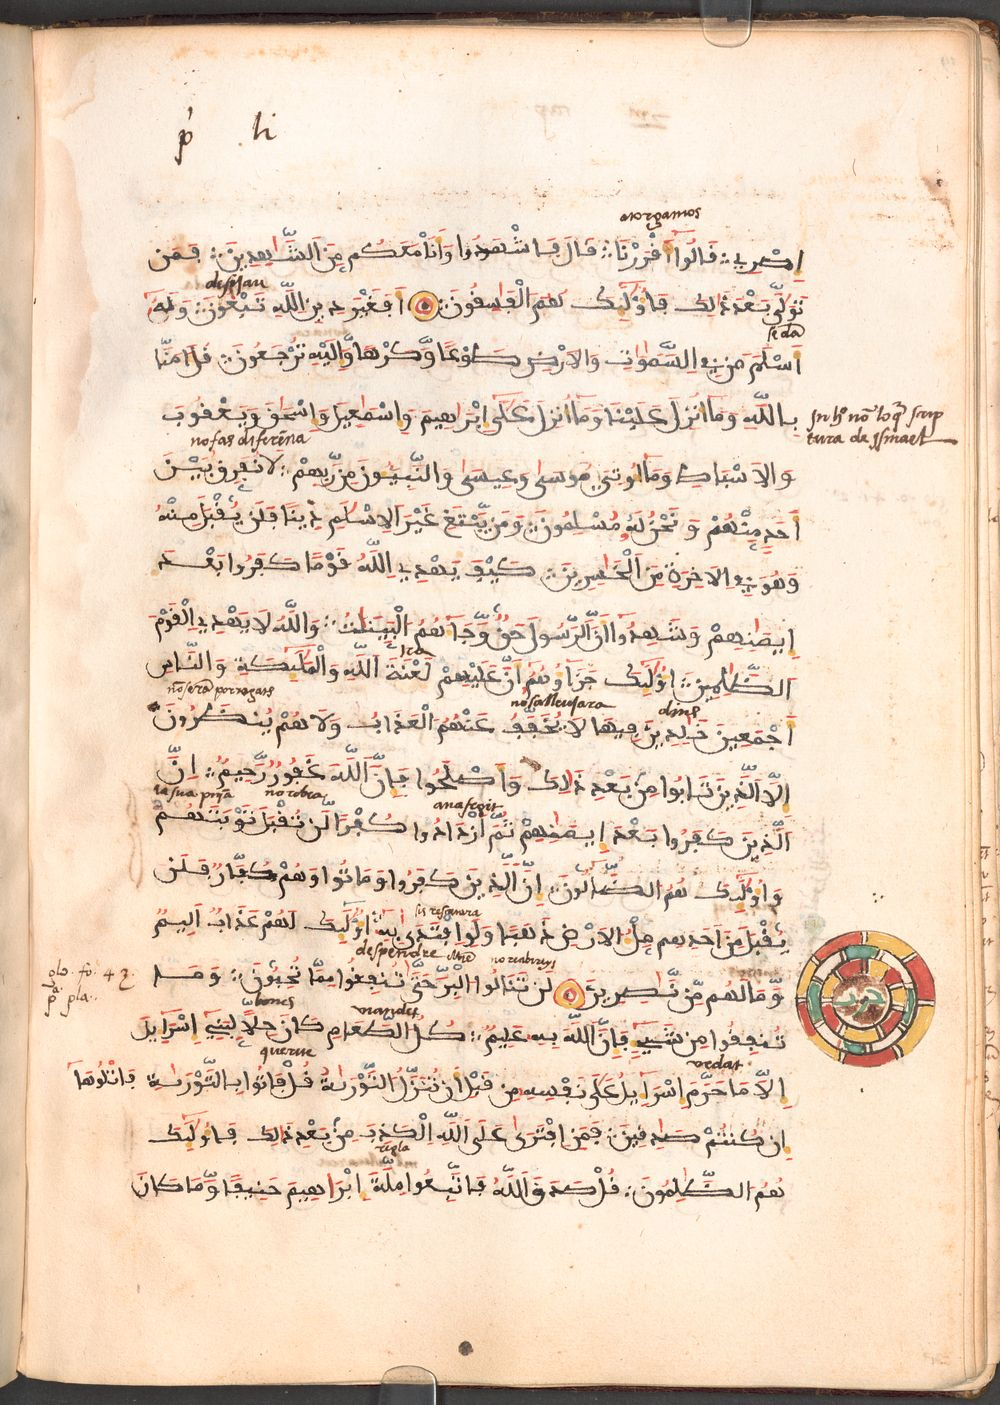 p̄ li
atorgamos
اِصْرِي قَالُوا أَقْرَرْنَا قَالَ فَاشْهَدُوا وَأَنَا مَعَكُم مِّنَ الشَّٰهِدِينَ فَمَن
تَوَلَّىٰ بَعْدَ ذَٰلِكَ فَأُوْلَٰئِكَ هُمُ الْفَٰسِقُونَ أَفَغَيْرَ دِينِ اللَّهِ تَبْغُونَ وَلَهُ
se da
أَسْلَمَ مَن فِي السَّمَٰوَٰتِ وَالْأَرْضِ طَوْعًا وَكَرْهًا وَإِلَيْهِ تُرْجَعُونَ قُلْ ءَامَنَّا
بِاللَّهِ وَمَا أُنزِلَ عَلَيْنَا وَمَا أُنزِلَ عَلَىٰ إِبْرَٰهِيمَ وَإِسْمَٰعِيلَ وَإِسْحَٰقَ وَيَعْقُوبَ
tura de ysmael
no fas diferēna
وَالْأَسْبَاطِ وَمَا أُوتِيَ مُوسَىٰ وَعِيسَىٰ وَالنَّبِيُّونَ مِن رَّبِّهِمْ لَا نُفَرِّقُ بَيْنَ
أَحَدٍ مِّنْهُمْ وَنَحْنُ لَهُ مُسْلِمُونَ وَمَن يَبْتَغِ غَيْرَ الْإِسْلَٰمِ دِينًا فَلَن يُقْبَلَ مِنْهُ
وَهُوَ فِي الْآخِرَةِ مِنَ الْخَٰسِرِينَ كَيْفَ يَهْدِي اللَّهُ قَوْمًا كَفَرُوا بَعْدَ
إِيمَٰنِهِمْ وَشَهِدُوا أَنَّ الرَّسُولَ حَقٌّ وَجَاءَهُمُ الْبَيِّنَٰتُ وَاللَّهُ لَا يَهْدِي الْقَوْمَ
الظَّٰلِمِينَ أُوْلَٰئِكَ جَزَاؤُهُمْ أَنَّ عَلَيْهِمْ لَعْنَةَ اللَّهِ وَالْمَلَٰئِكَةِ وَالنَّاسِ
أَجْمَعِينَ خَٰلِدِينَ فِيهَا لَا يُخَفَّفُ عَنْهُمُ الْعَذَابُ وَلَا هُمْ يُنظَرُونَ
إِلَّا الَّذِينَ تَابُوا مِن بَعْدِ ذَٰلِكَ وَأَصْلَحُوا فَإِنَّ اللَّهَ غَفُورٌ رَّحِيمٌ إِنَّ
no rebra
الَّذِينَ كَفَرُوا بَعْدَ إِيمَٰنِهِمْ ثُمَّ ازْدَادُوا كُفْرًا لَّن تُقْبَلَ تَوْبَتُهُمْ
وَأُوْلَٰئِكَ هُمُ الضَّالُّونَ إِنَّ الَّذِينَ كَفَرُوا وَمَاتُوا وَهُمْ كُفَّارٌ فَلَن
يُقْبَلَ مِنْ أَحَدِهِم مِّلْءُ الْأَرْضِ ذَهَبًا وَلَوِ افْتَدَىٰ بِهِ أُوْلَٰئِكَ لَهُمْ عَذَابٌ أَلِيمٌ
despendre
وَمَا لَهُم مِّن نَّٰصِرِينَ لَن تَنَالُوا الْبِرَّ حَتَّىٰ تُنفِقُوا مِمَّا تُحِبُّونَ وَمَا
glo. fo. 42
bones viandes
تُنفِقُوا مِن شَيْءٍ فَإِنَّ اللَّهَ بِهِ عَلِيمٌ كُلُّ الطَّعَامِ كَانَ حِلًّا لِّبَنِي إِسْرَٰءِيلَ
vedat
إِلَّا مَا حَرَّمَ إِسْرَٰءِيلُ عَلَىٰ نَفْسِهِ مِن قَبْلِ أَن تُنَزَّلَ التَّوْرَىٰةُ قُلْ فَاتُوا بِالتَّوْرَىٰةِ فَاتْلُوهَا
إِن كُنتُمْ صَٰدِقِينَ فَمَنِ افْتَرَىٰ عَلَى اللَّهِ الْكَذِبَ مِن بَعْدِ ذَٰلِكَ فَأُوْلَٰئِكَ
regla
هُمُ الظَّٰلِمُونَ قُلْ صَدَقَ اللَّهُ فَاتَّبِعُوا مِلَّةَ إِبْرَٰهِيمَ حَنِيفًا وَمَا كَانَ